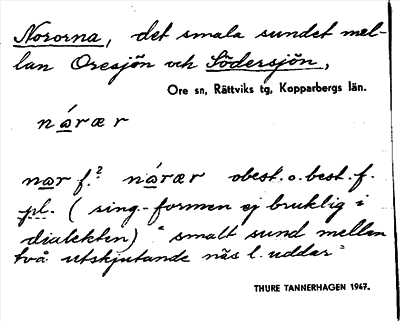 Nororna, det smala sundet mel-
lan Oresjön och Södersjön,
Ore sn, Rättviks tg, Kopparbergs län.
nåræ r
nar f.² nåræ r obest. o. best. f.
pl. (sing.-formen ej bruklig i
dialekten) "smalt sund mellan
två utskjutande näs l. uddar"
THURE TANNERHAGEN 1967.